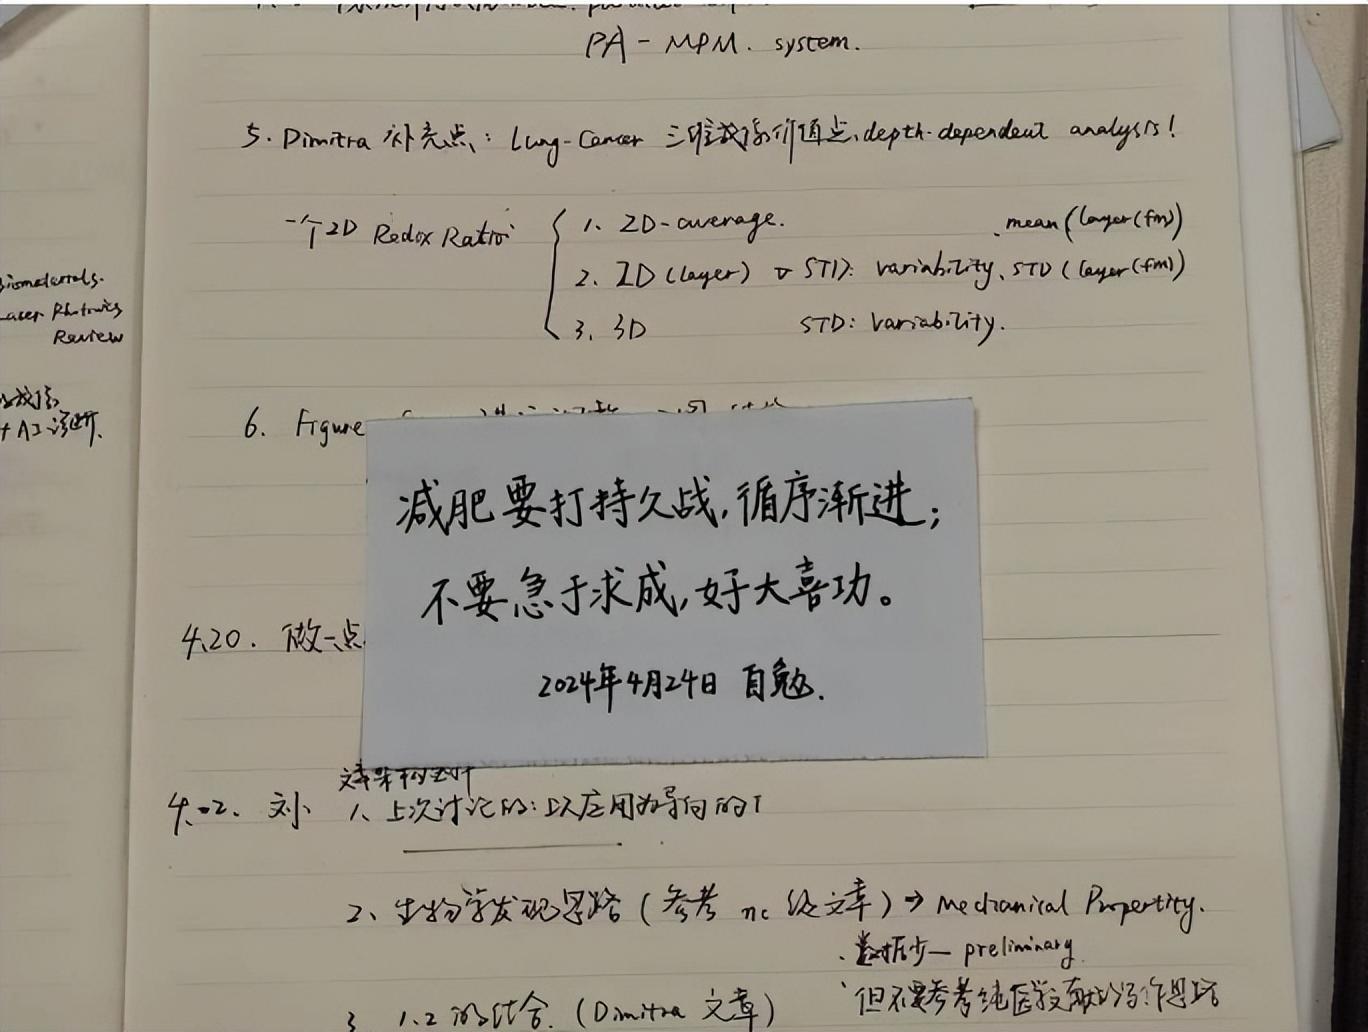 PA-MPM. system.
5. Dimitra 补充点: Lung-Cancer 三维成像价值点, depth-dependent analysis!
一个2D Redox Ratio:
1. 2D-average. mean(layer(fm))
2. 2D(layer) STD: variability, STD(layer(fm))
3. 3D STD: variability.
Biomaterials.
Laser Photonics
Review
成像
+AI诊断.
6. Figure
减肥要打持久战,循序渐进;
不要急于求成,好大喜功。
2024年4月24日 自勉.
4.20. 做一点
4.02. 刘 1、上次讨论的:以应用为导向的
2、生物学发现思路(参考 nc 文章)→ Mechanical Propertity.
数据少— preliminary
但不要参考纯医学文献的写作思路
3. 1.2的结合. (Dimitra 文章)